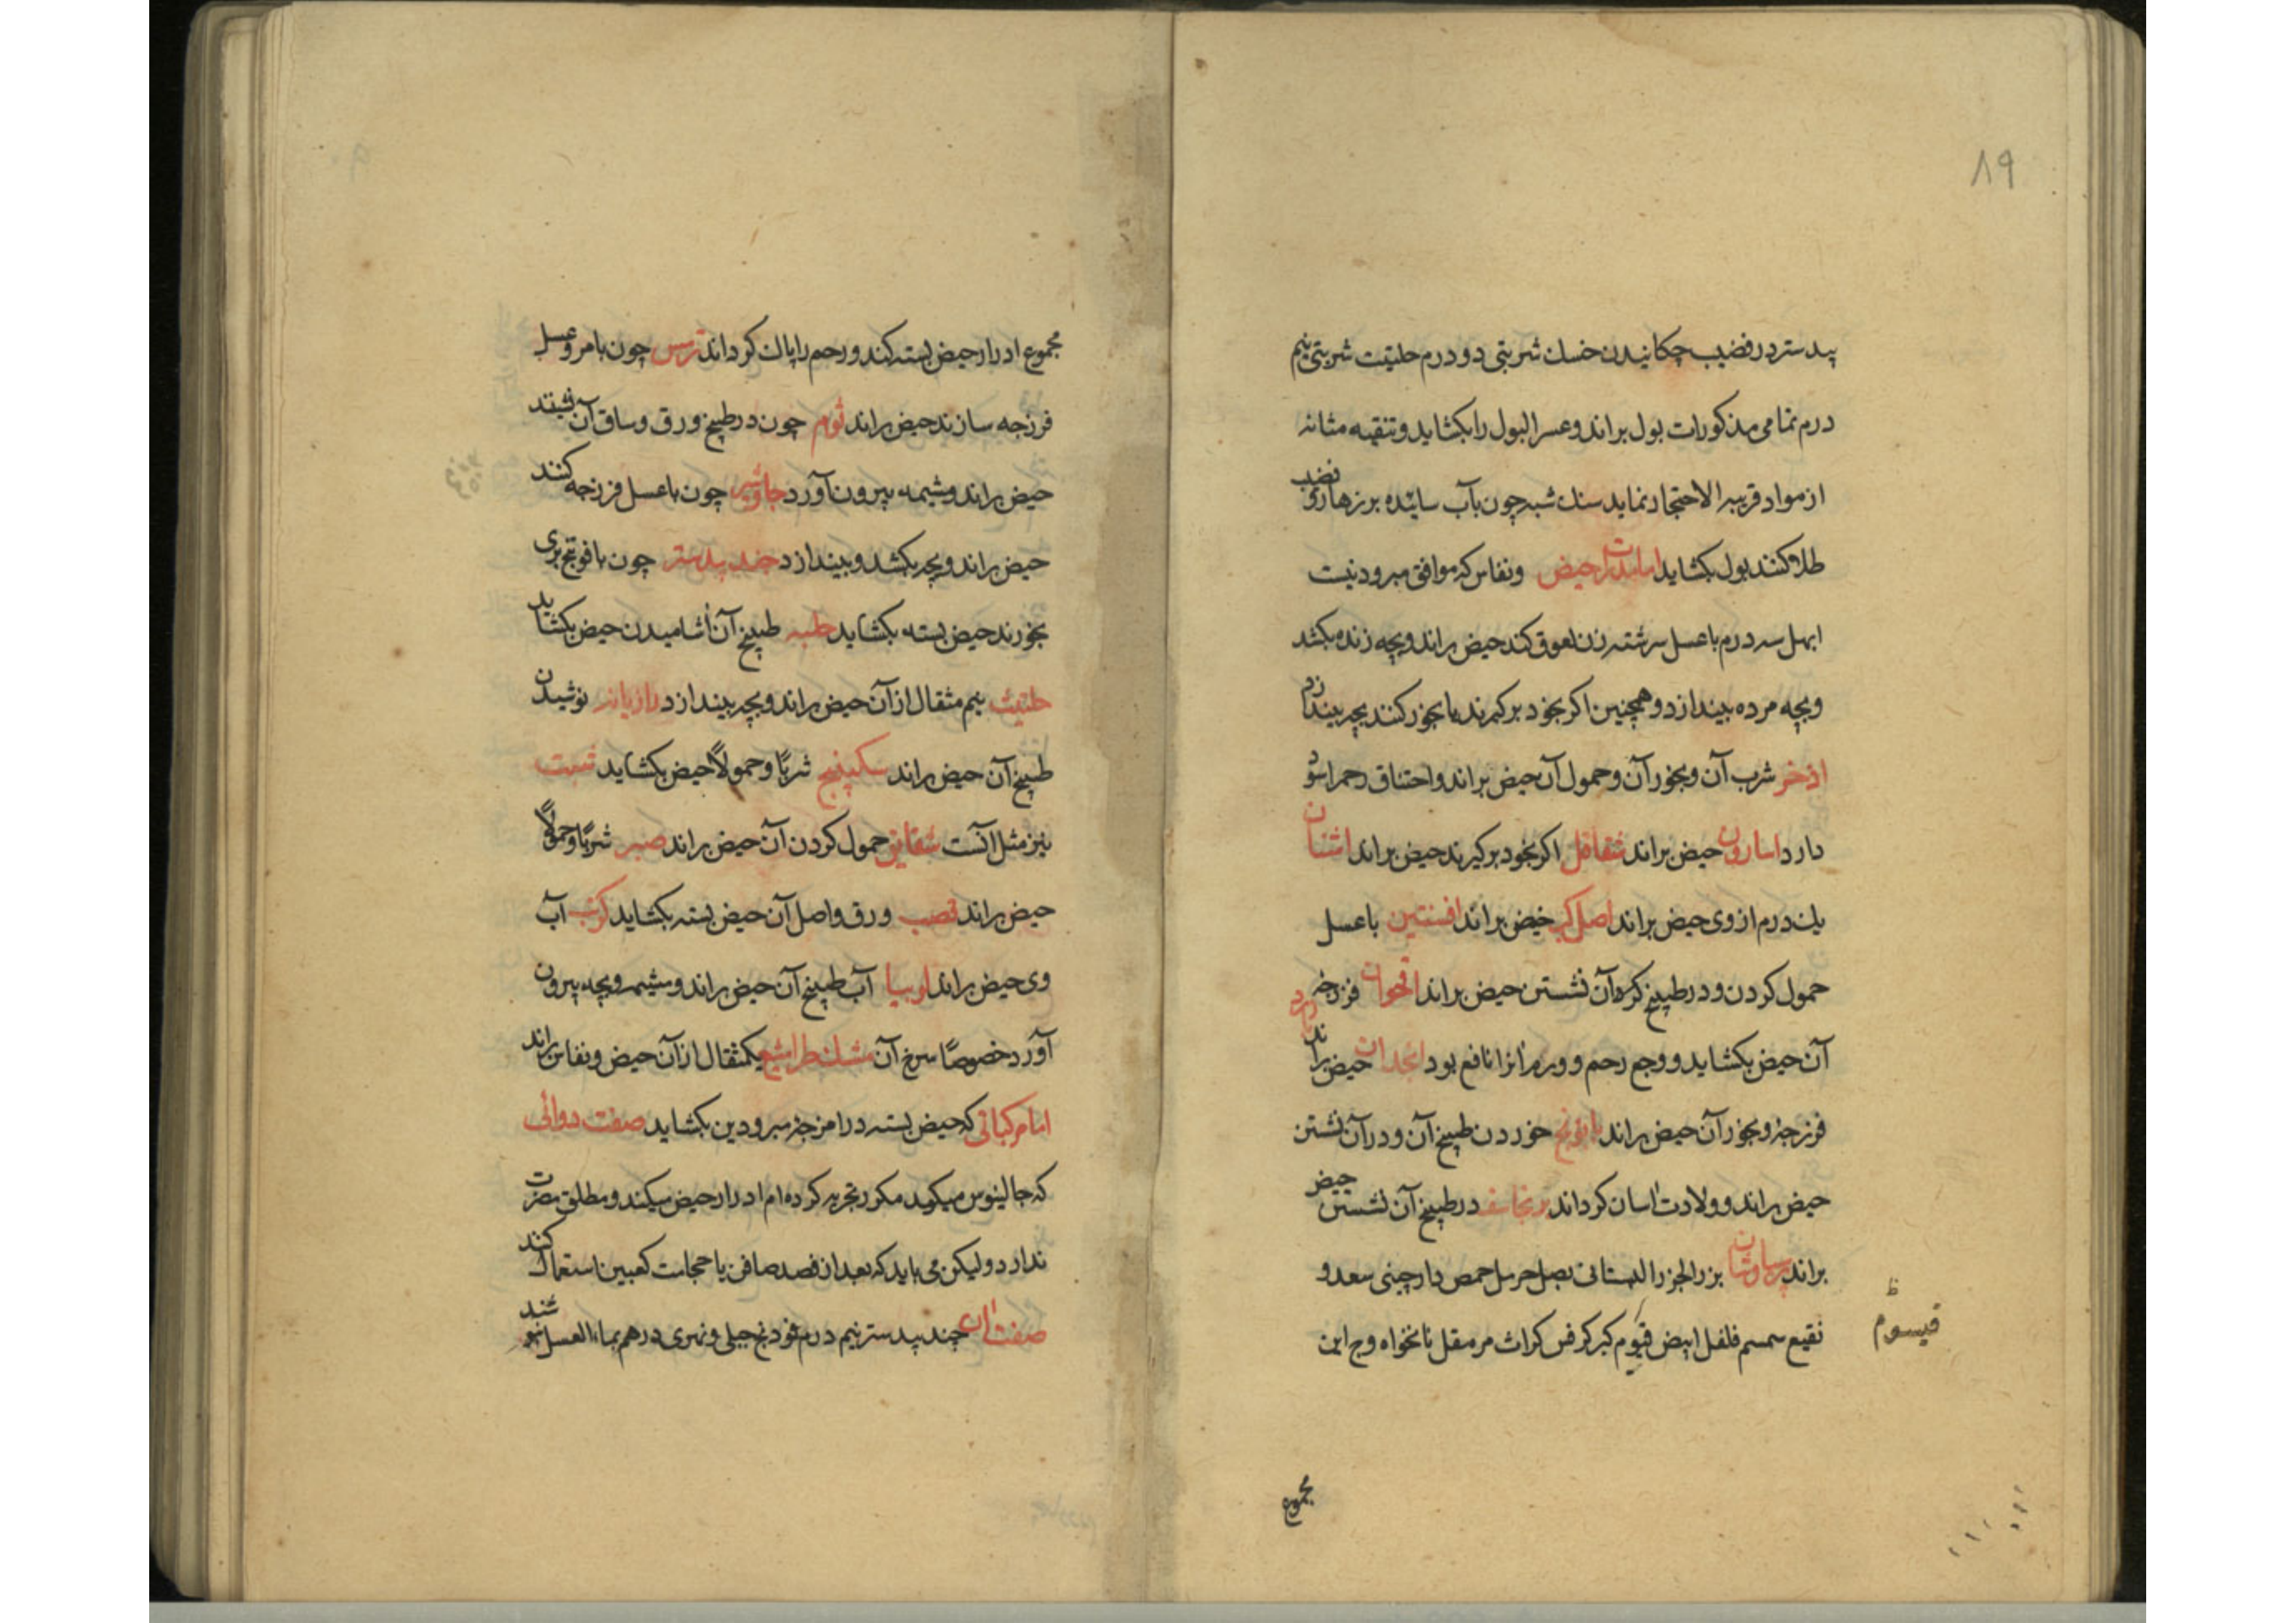 ۸۹
پیدستر در قضیب چکانیدن خسک شربتی دو درم حلتیت شربتی نیم
درم تمامی مذکورات بول براند و عسر البول را بکشاید و تنقیه مثانه
از مواد قریبه الاحتجار نماید سنک شبه چون بآب سائیده بر زهار و قضیب
طلا کنند بول بکشاید اما مدرات حیض و نفاس که موافق مبرود نیست
ابهل سه درم با عسل سرشته زن لعوق کند حیض براند و بچه زنده بکشد
و بچه مرده بیندازد و همچنین اکر بخود برکیرند یا بخور کنند بچه بیندازد
اذخر شرب آن و بخور آن و حمول آن حیض براند و اختناق رحم را سود
دارد اسارون حیض براند شقاقل اکر بخود برکیرند حیض براند اشنان
یک درم از وی حیض براند اصل کبر حیض براند افسنتین با عسل
حمول کردن و در طبیخ کرم آن نشستن حیض براند اقحوان فرزجه
آن حیض بکشاید و وجع رحم و ورم آنرا نافع بود انجدان حیض براند
فرزجه و بخور آن حیض براند بابونج خوردن طبیخ آن و در آن نشستن
حیض براند و ولادت آسان کرداند برنجاسف در طبیخ آن نشستن حیض
براند پرسیاوشان بزر الجزر البستانی بصل حرمل حمص دارچینی سعد و
نقیع سمسم فلفل ابیض قیوم کبر کرفس کراث مر مقل نانخواه وج این
قیسوم ظ
مجموع
مجموع ادرار حیض بسته کند و رحم را پاک کرداند ترمس چون با مر و عسل
فرزجه سازند حیض براند ثوم چون در طبیخ ورق و ساق آن نشینند
حیض براند و مشیمه بیرون آورد جاوشیر چون با عسل فرزجه کنند
حیض براند و بچه بکشد و بیندازد جند پیدستر چون با فوتنج بری
بخورند حیض بسته بکشاید حلبه طبیخ آن آشامیدن حیض بکشاید
حلتیت نیم مثقال از آن حیض براند و بچه بیندازد رازیانه نوشیدن
طبیخ آن حیض براند سکبینج شربًا و حمولاً حیض بکشاید شبت
نیز مثل آنست شقایق حمول کردن آن حیض براند صبر شربًا و حمولاً
حیض براند قصب ورق و اصل آن حیض بسته بکشاید کرنب آب
وی حیض براند لوبیا آب طبیخ آن حیض براند و مشیمه و بچه بیرون
آورد خصوصًا سرخ آن مشکطرامشیع یکمثقال از آن حیض و نفاس براند
اما مرکباتی که حیض بسته در امزجه مبرودین بکشاید صفت دوائی
که جالینوس میکوید مکرر تجربه کرده ام ادرار حیض میکند و مطلق مضرت
ندارد ولیکن می باید که بعد از فصد صافن یا حجامت کعبین استعمال کنند
صفت آن جند پیدستر نیم درم فودنج جبلی و نهری درهم بماء العسل